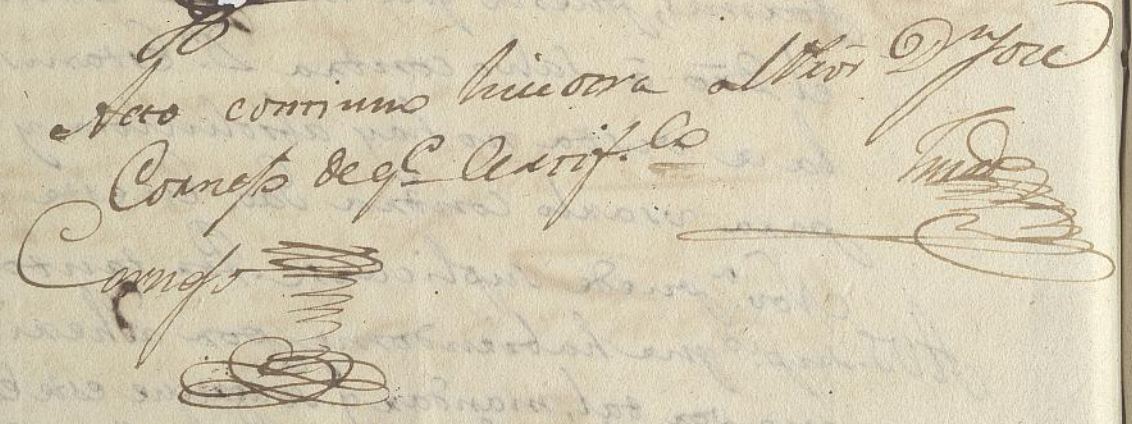 Acto continuo hice otra al Sor Dn Jose
Cornejo de qe. Certifco
Cornejo